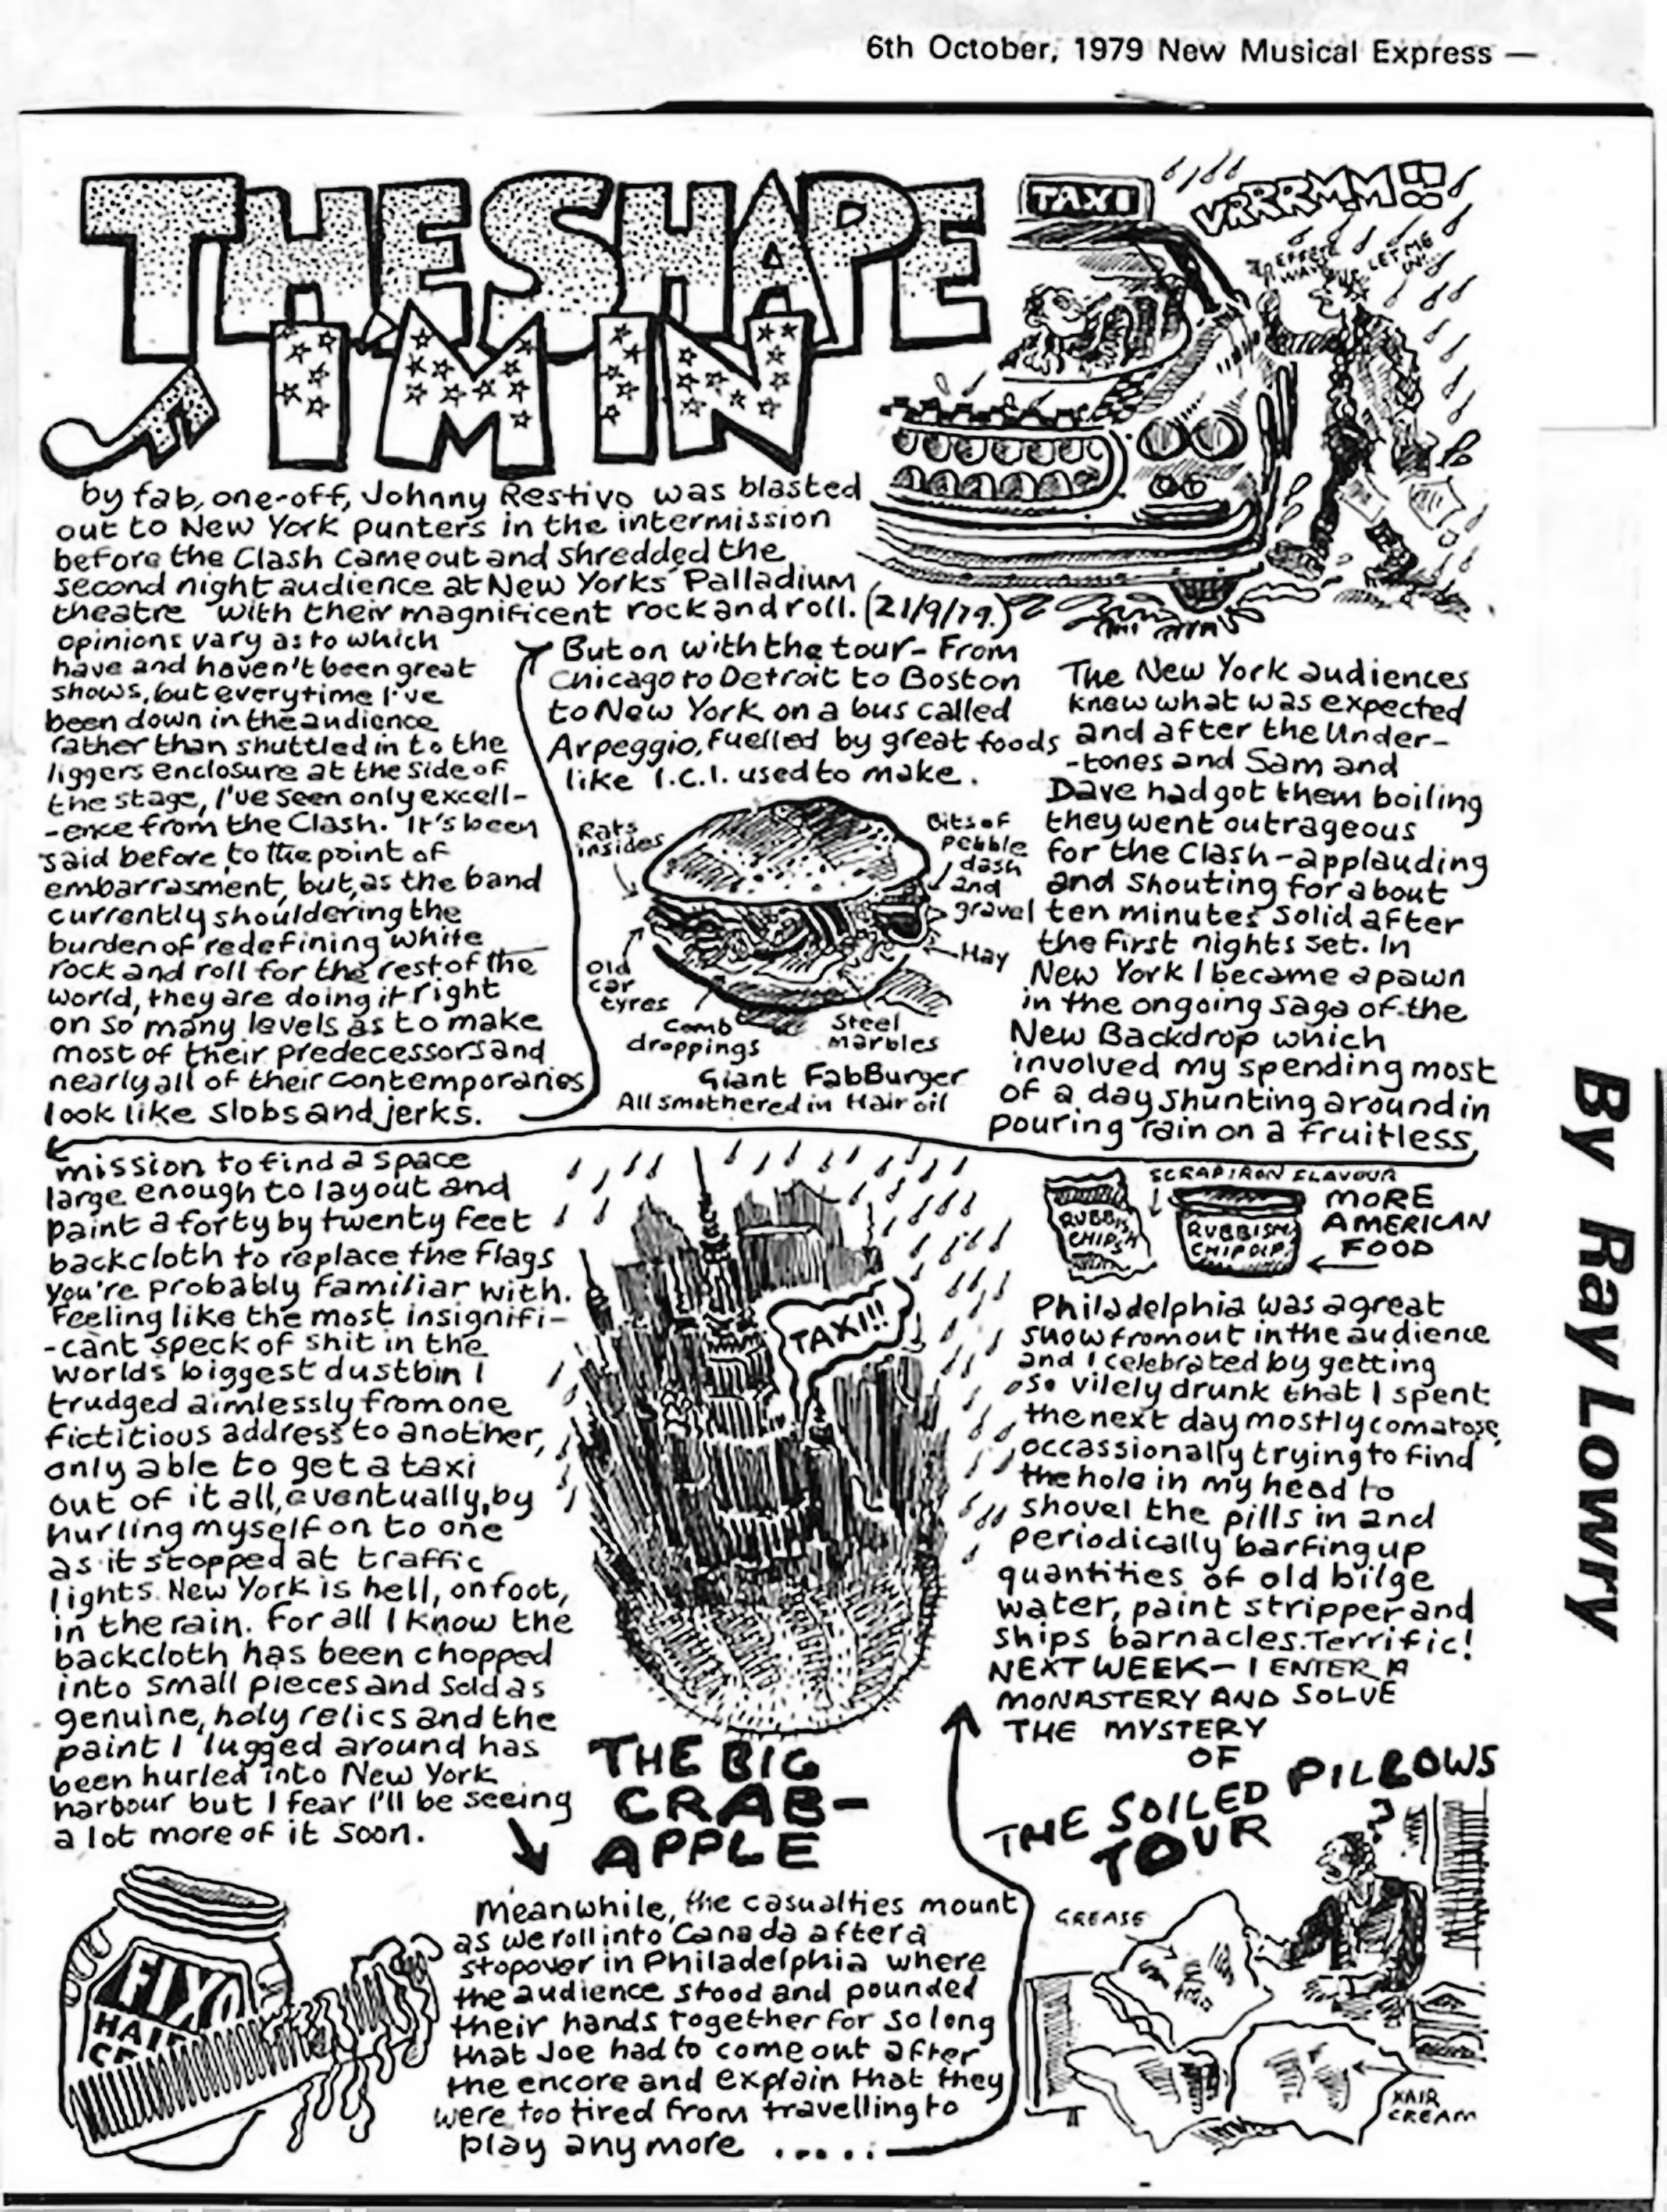 6th October, 1979 New Musical Express —
THE SHAPE
I'M IN
TAXI
VRRRMM!!
LET ME
IN!
by fab, one-off, Johnny Restivo was blasted
out to New York punters in the intermission
before the Clash came out and shredded the
second night audience at New Yorks Palladium
theatre with their magnificent rock and roll. (21/9/79.)
opinions vary as to which
have and haven't been great
shows, but everytime I've
been down in the audience
rather than shuttled in to the
liggers enclosure at the side of
the stage, I've seen only excell-
-ence from the Clash. It's been
said before, to the point of
embarrasment, but, as the band
currently shouldering the
burden of redefining white
rock and roll for the rest of the
world, they are doing it right
on so many levels as to make
most of their predecessors and
nearly all of their contemporaries
look like slobs and jerks.
But on with the tour- From
Chicago to Detroit to Boston
to New York on a bus called
Arpeggio, fuelled by great foods
like I.C.I. used to make.
Rats
insides
Bits of
pebble
dash
and
gravel
Hay
Old
car
tyres
Comb
droppings
Steel
marbles
Giant FabBurger
All smothered in Hair oil
The New York audiences
knew what was expected
and after the Under-
-tones and Sam and
Dave had got them boiling
they went outrageous
for the Clash-applauding
and shouting for about
ten minutes solid after
the first nights set. In
New York I became a pawn
in the ongoing saga of the
New Backdrop which
involved my spending most
of a day shunting around in
pouring rain on a fruitless
mission to find a space
large enough to layout and
paint a forty by twenty feet
backcloth to replace the flags
you're probably familiar with.
Feeling like the most insignifi-
-cant speck of shit in the
worlds biggest dustbin I
trudged aimlessly from one
fictitious address to another,
only able to get a taxi
out of it all, eventually, by
hurling myself on to one
as it stopped at traffic
lights. New York is hell, on foot,
in the rain. For all I know the
backcloth has been chopped
into small pieces and sold as
genuine, holy relics and the
paint I lugged around has
been hurled into New York
harbour but I fear I'll be seeing
a lot more of it soon.
TAXI!!
THE BIG
CRAB-
APPLE
FIX
HAIR
Meanwhile, the casualties mount
as we roll into Canada after a
stopover in Philadelphia where
the audience stood and pounded
their hands together for so long
that Joe had to come out after
the encore and explain that they
were too tired from travelling to
play any more .....
SCRAP IRON FLAVOUR
RUBBISH
CHIPS
RUBBISH
CHIP DIP
MORE
AMERICAN
FOOD
Philadelphia was a great
show from out in the audience
and I celebrated by getting
so vilely drunk that I spent
the next day mostly comatose,
occassionally trying to find
the hole in my head to
shovel the pills in and
periodically barfing up
quantities of old bilge
water, paint stripper and
ships barnacles. Terrific!
NEXT WEEK- I ENTER A
MONASTERY AND SOLVE
THE MYSTERY
OF
THE SOILED PILLOWS
TOUR
?
GREASE
HAIR
CREAM
By Ray Lowry